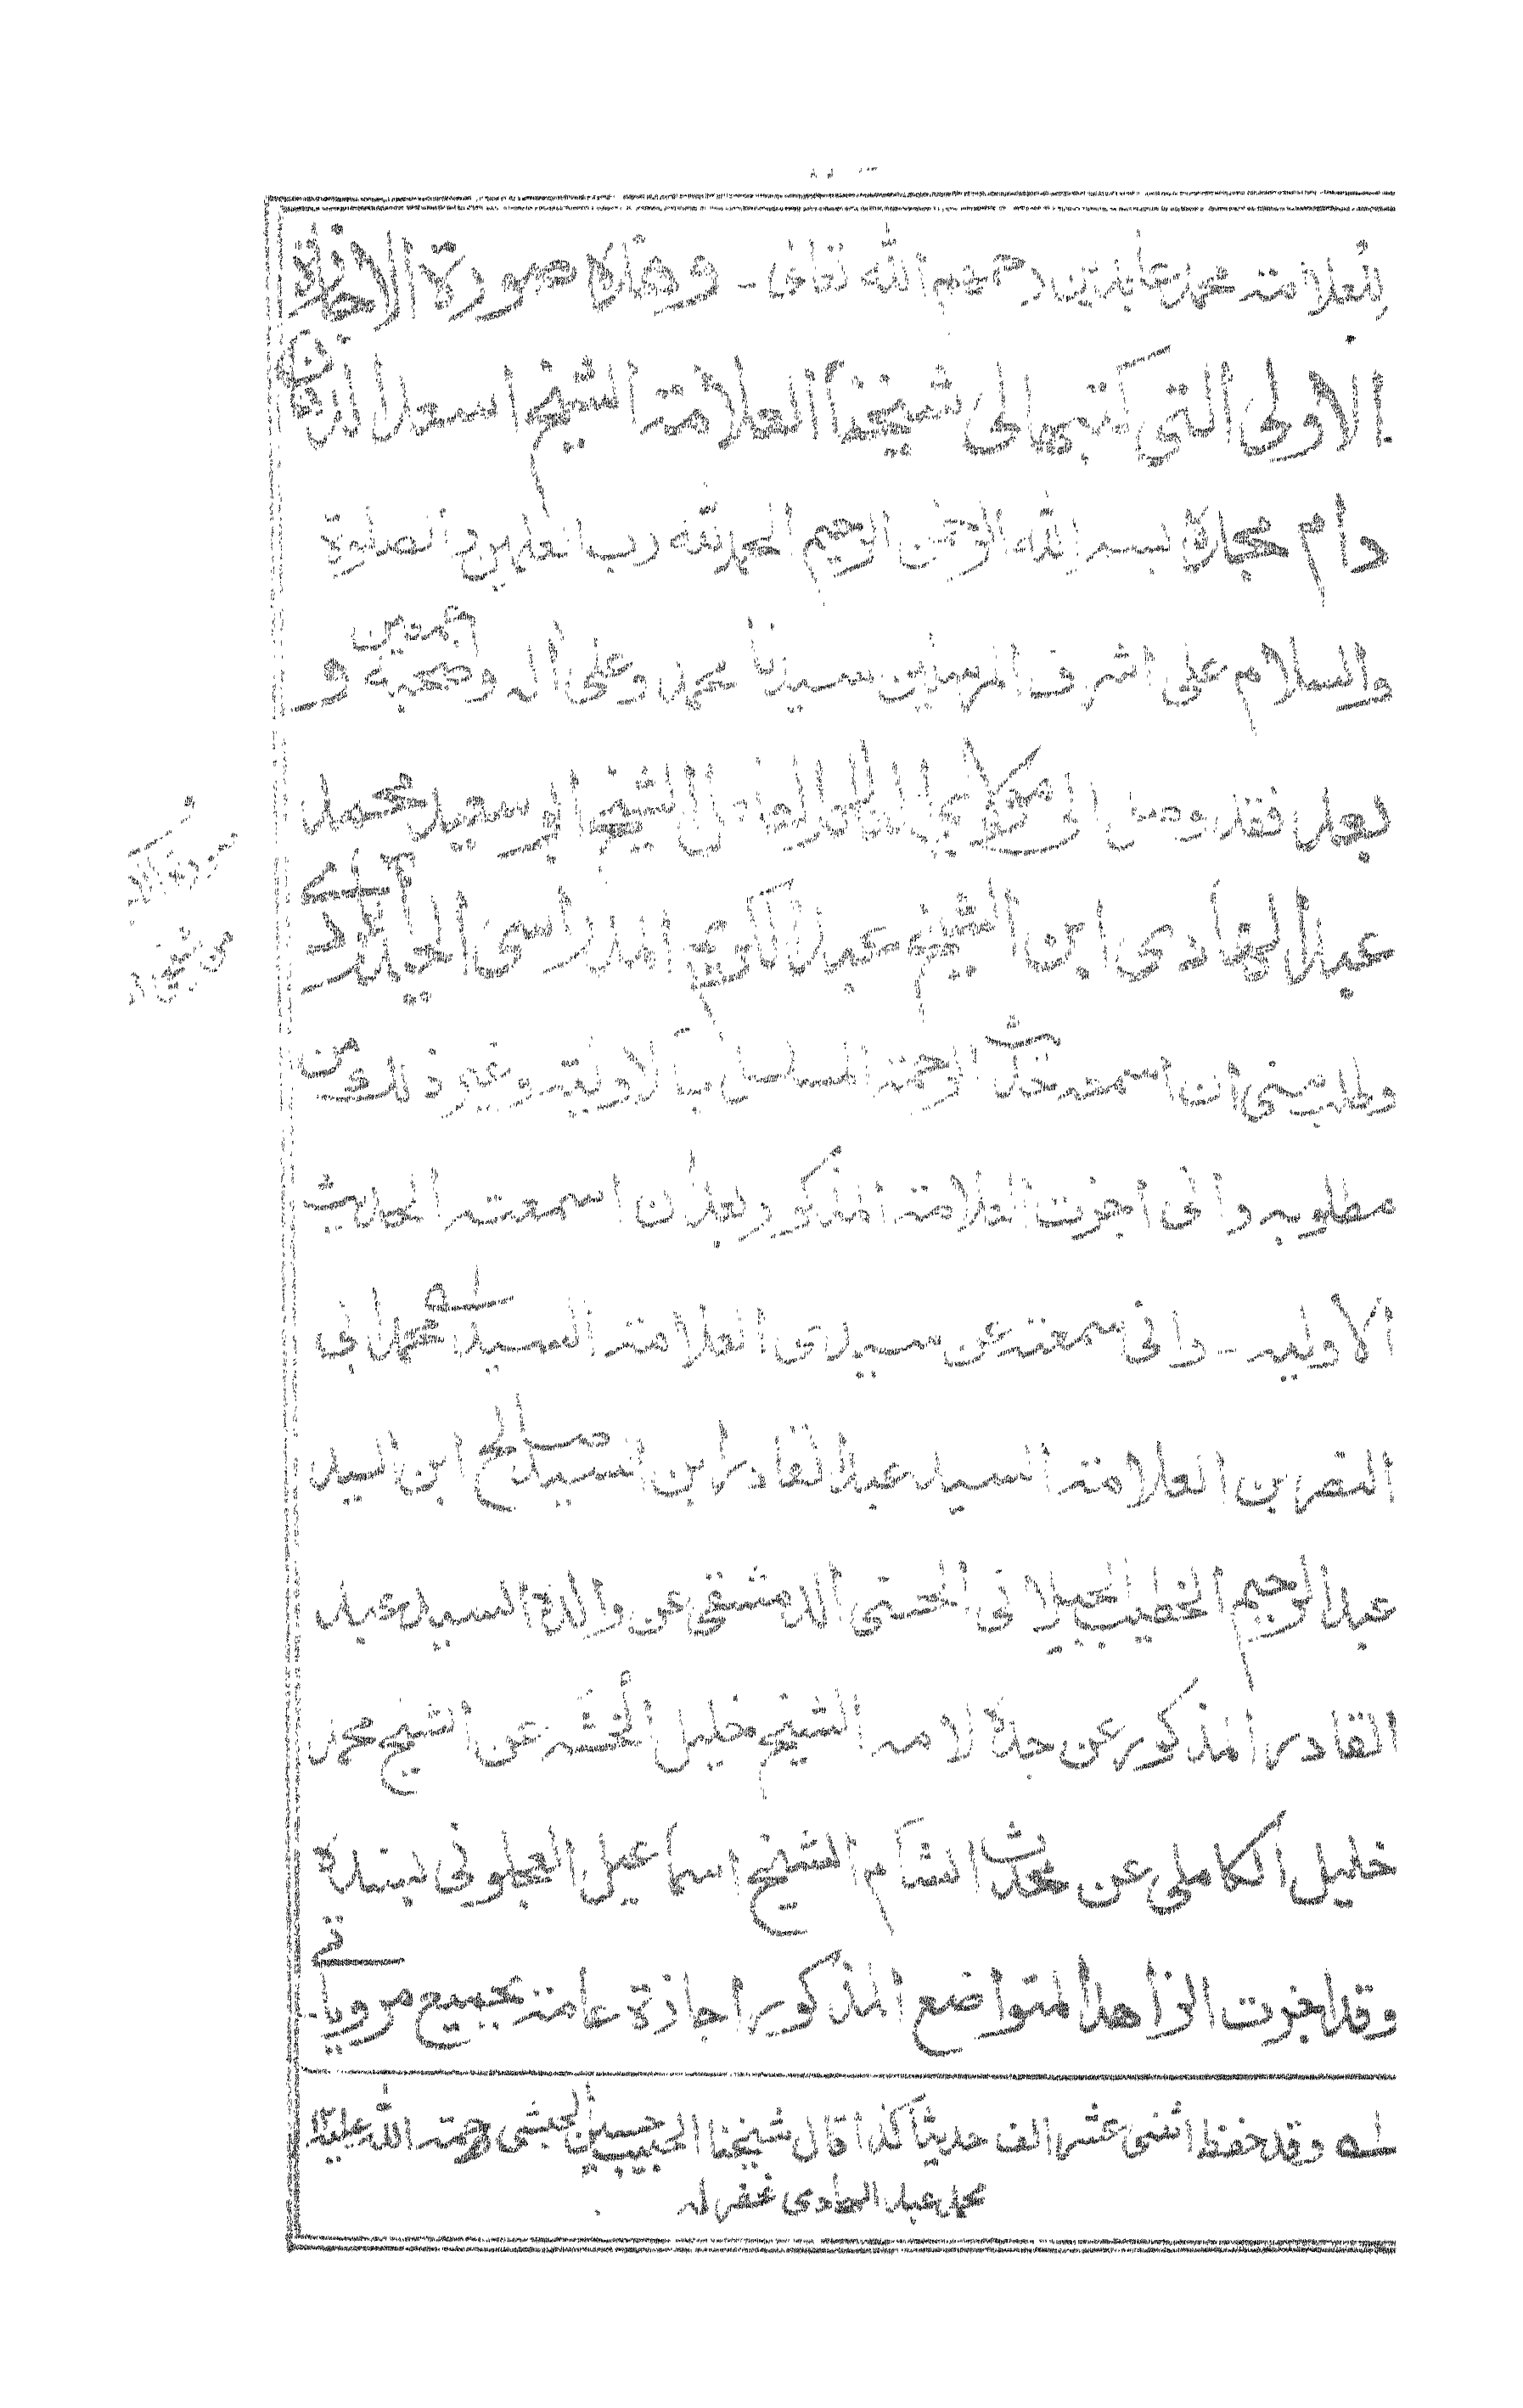 للعلامة محمد عابدين رحمهم الله تعالى - وهذه صورة الاجازة
الاولى التي كتبها لى شيخنا العلامة الشيخ اسعد الدهان
دام مجده بسم الله الرحمن الرحيم الحمد لله رب العلمين والصلوة
والسلام على اشرف المرسلين سيدنا محمد وعلى اله وصحبه اجمعين و
بعد فقد وصل الى الشيخ ابو سعيد محمد
عبد الهادى ابن الشيخ عبد المدراسى الحيدر
وطلب منى ان اسمعه حديث الرحمة المسلسل بالاولية وغير ذلك من
مطلوبه وانى اجزت العلامة المذكور بعد ان اسمعته الحديث
الاولية - وانى سمعته عن سيدى العلامة السيد محمد ابى
النصر بن العلامة السيد عبد القادر ابن السيد صالح ابن السيد
عبد الرحيم الخطيب الجيلانى الحسنى الدمشقى عن والده السيد عبد
القادر المذكور عن جده لامه الشيخ خليل الخشه عن الشيخ محمد
خليل الكاملى عن محدث الشام الشيخ اسماعيل العجلونى بسنده
وقد اجزت الزاهد المتواضع المذكور اجازة عامة بجميع مروياتى
له وقد حفظ اثنى عشر الف حديثا كذا قال شيخنا الحبيب حسين الحبشى رحمة الله عليه
محمد عبد الهادى غفر له